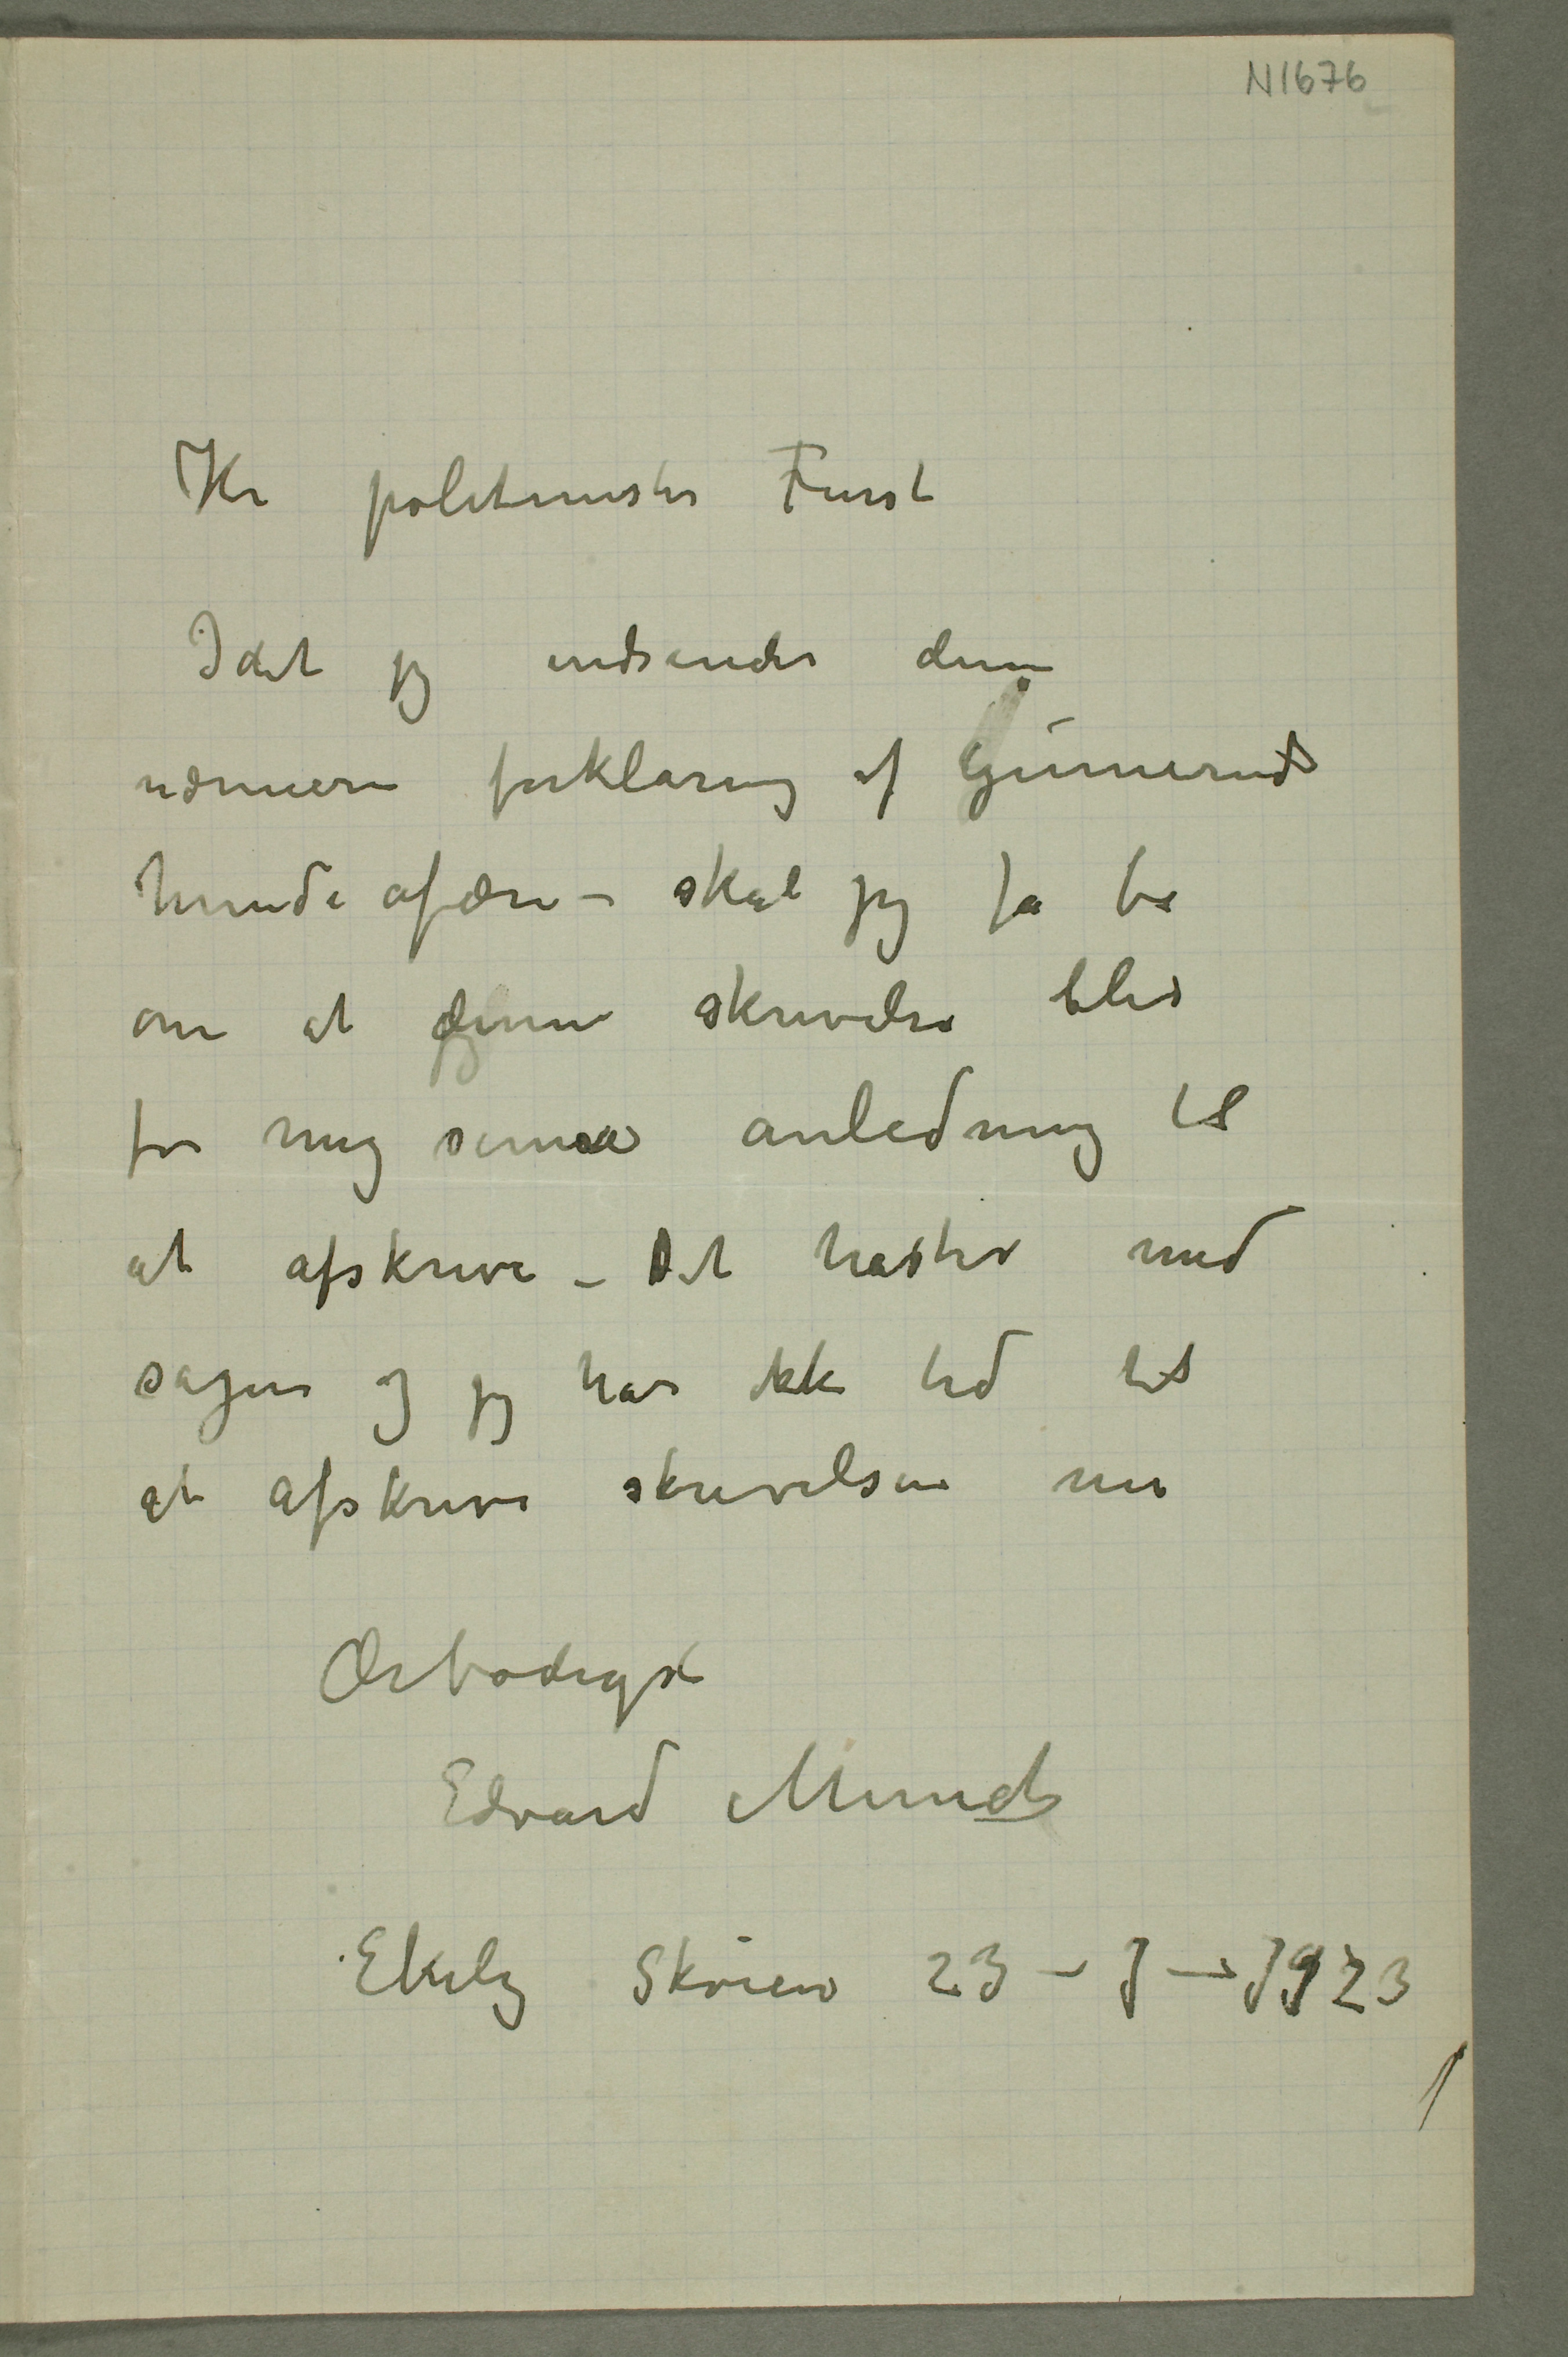 N1676
Hr politimester Furst
Idet jeg indsender denne
nærmere forklaring af Gunnerud
hundeafære – skal jeg få be
om at denne skrivelse blir
for mig anledning til
at afskrive – Det haster med
sagen og jeg har ikke tid til
at afskrive skrivelsen nu
Ærbødigst
Edvard Munch
Ekely Skøien 23 – – 1923